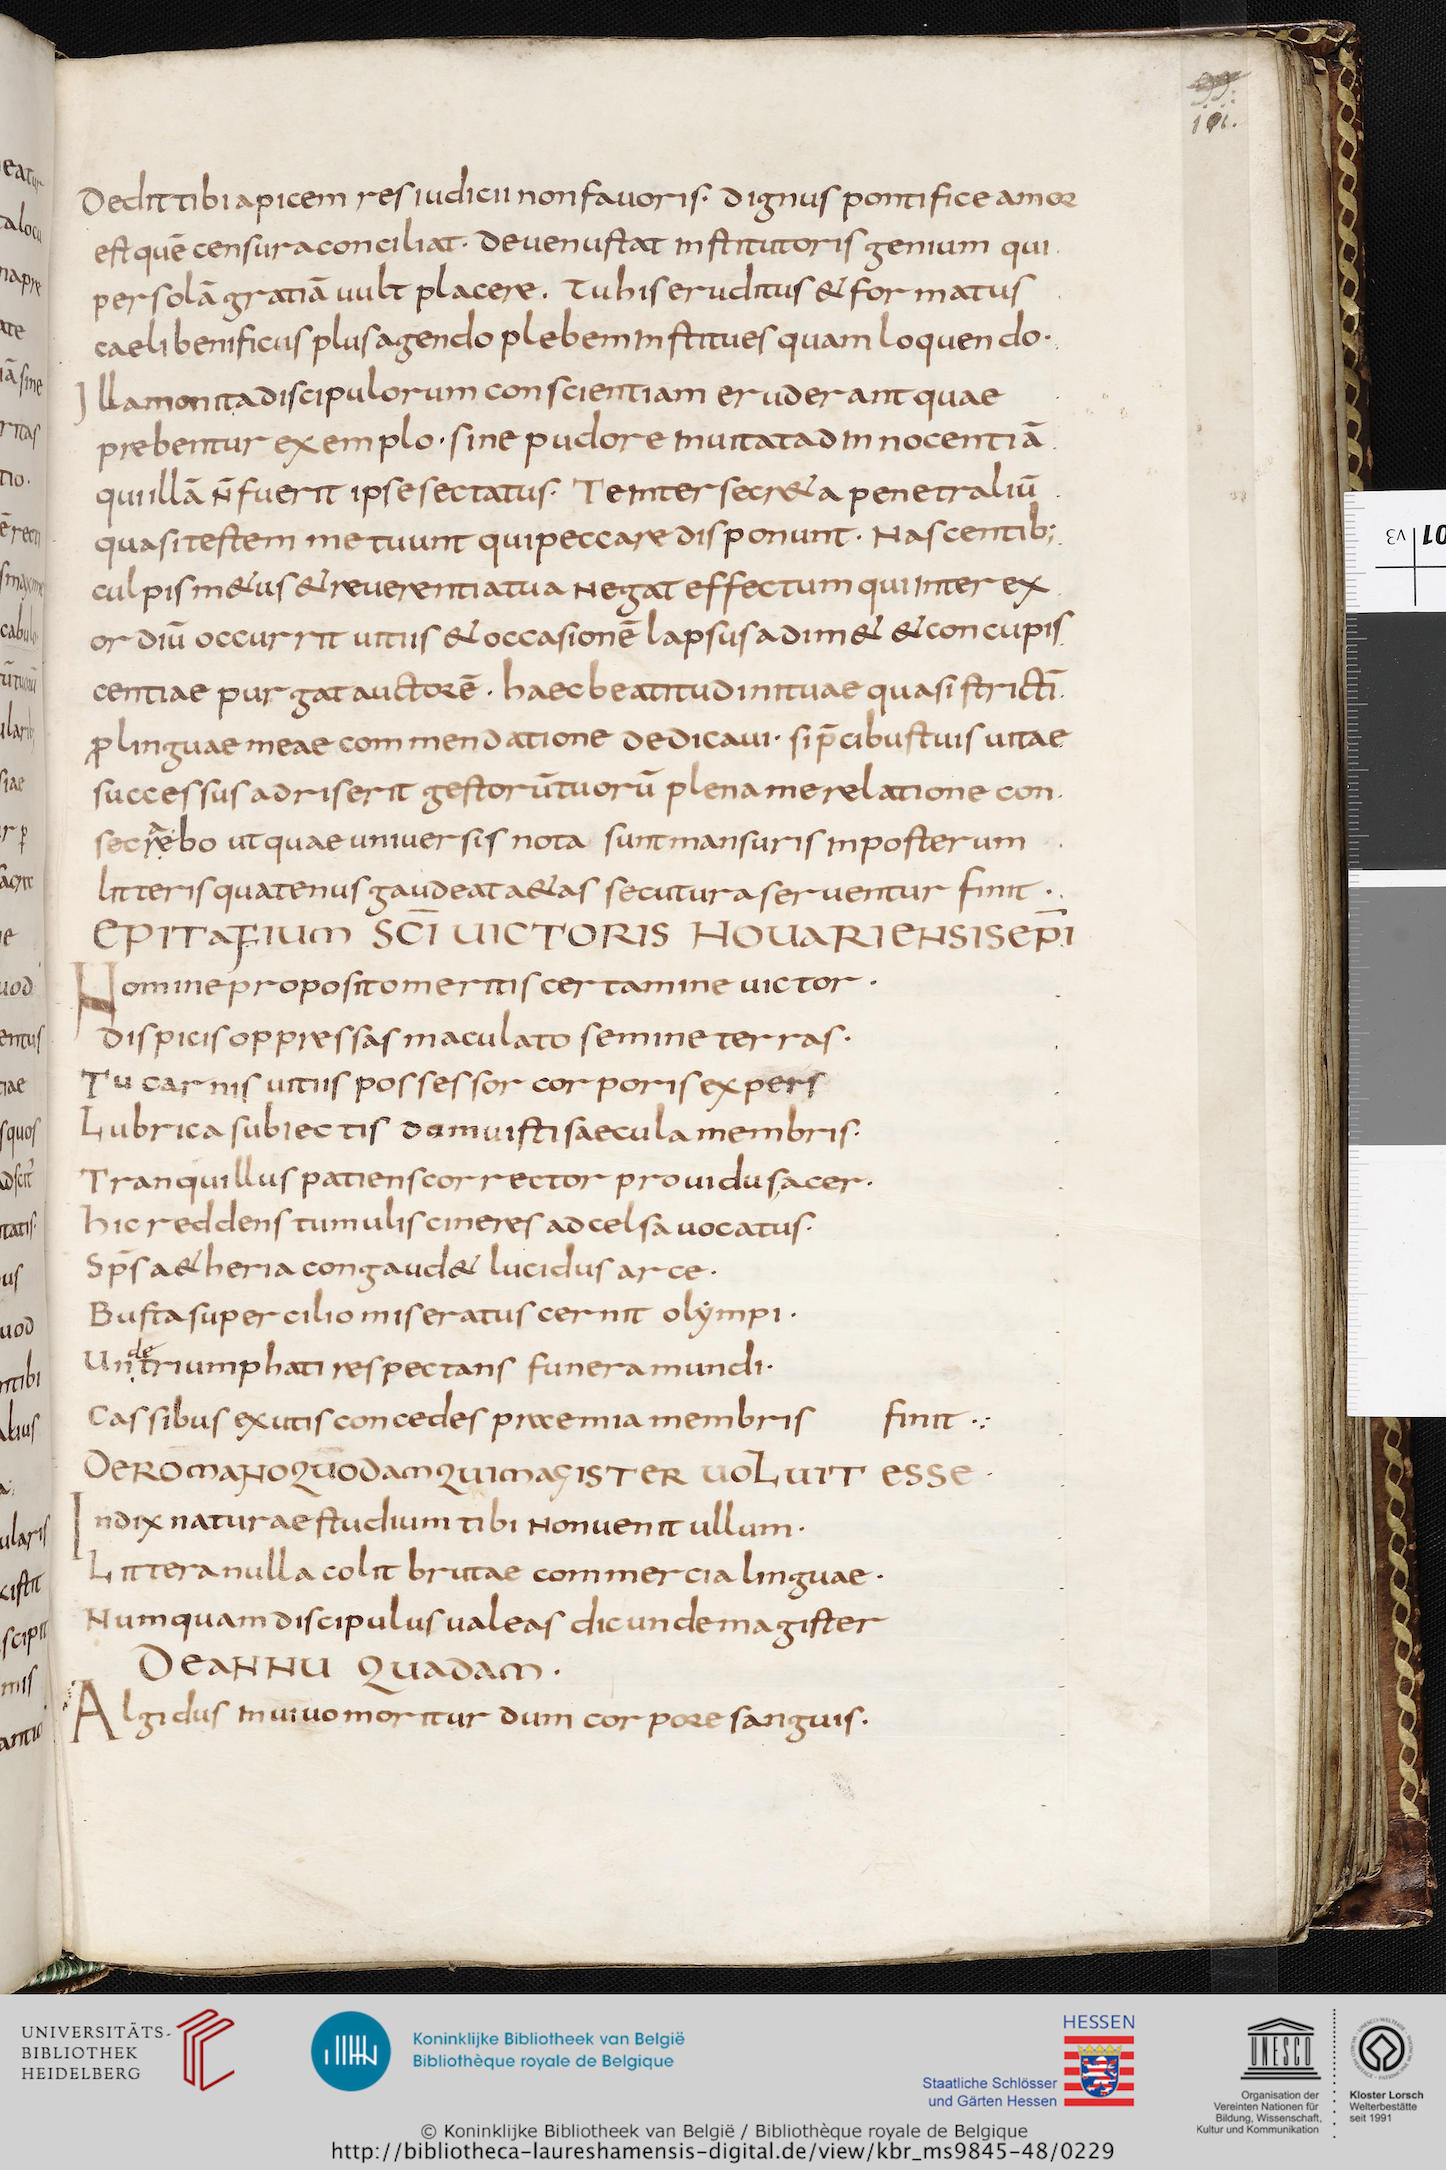 99.
101.
Dedit tibi apicem res iudicii non favoris. Dignus pontifice amor
est quē censura conciliat. Devenustat institutoris genium qui
per solā gratiā vult placere. Tu his eruditus & formatus
caeli benificus plus agendo plebem institues quam loquendo.
Illa monita discipulorum conscientiam eruderant quae
prebentur exemplo. sine pudore invitat ad innocentiā
qui illā n̄ fuerit ipse sectatus. Te inter secr&a penetraliū
quasi testem metuunt qui peccare disponunt. Nascentib;
culpis m&us & reverentia tua negat effectum qui inter ex
ordiū occurrit vitiis & occasionē lapsus adim& & concupis
centiae purgat auctorē. haec beatitudini tuae quasi strictī
ꝓ linguae meae commendatione dedicavi. si p̄cibus tuis vitae
successus adriserit gestorū tuorū plena me relatione con
secrabo ut quae universis nota sunt mansuris in posterum
litteris quatenus gaudeat a&as secutura serventur finit.
EPITAFIUM SCĪ VICTORIS NOVARIENSIS EPĪ
Nomine proposito meritis certamine victor.
Dispicis oppressas maculato semine terras.
Tu carnis vitiis possessor corporis expers
Lubrica subiectis domuisti saecula membris.
Tranquillus patiens corrector providus acer.
hic reddens tumulis cineres ad celsa vocatus.
Sp̄s a&heria congaud& lucidus arce.
Busta supercilio miseratus cernit olẏmpi.
Unde triumphati respectans funera mundi.
Cassibus exutis concedes praemia membris finit.
DE ROMANO QUODAM QUI MAGISTER VOLUIT ESSE.
Indix naturae studium tibi non venit ullum.
Littera nulla colit brutae commercia linguae.
Numquam discipulus valeas dic unde magister
DE ANNU QUADAM.
Algidus in vivo moritur dum corpore sanguis.
UNIVERSITÄTS-
BIBLIOTHEK
HEIDELBERG
Koninklijke Bibliotheek van België
Bibliothèque royale de Belgique
HESSEN
Staatliche Schlösser
und Gärten Hessen
UNESCO
Organisation der
Vereinten Nationen für
Bildung, Wissenschaft,
Kultur und Kommunikation
Kloster Lorsch
Welterbestätte
seit 1991
© Koninklijke Bibliotheek van België / Bibliothèque royale de Belgique
http://bibliotheca-laureshamensis-digital.de/view/kbr_ms9845-48/0229